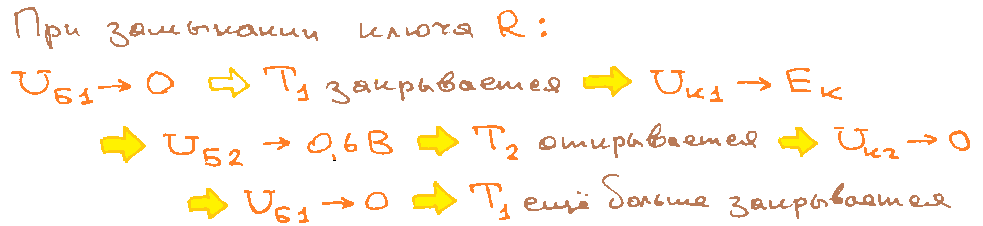 При замыкании ключа R:
U_Б1 → 0 ⇨ T_1 закрывается ⇨ U_К1 → E_К
⇨ U_Б2 → 0,6В ⇨ T_2 открывается ⇨ U_К2 → 0
⇨ U_Б1 → 0 ⇨ T_1 ещё больше закрывается